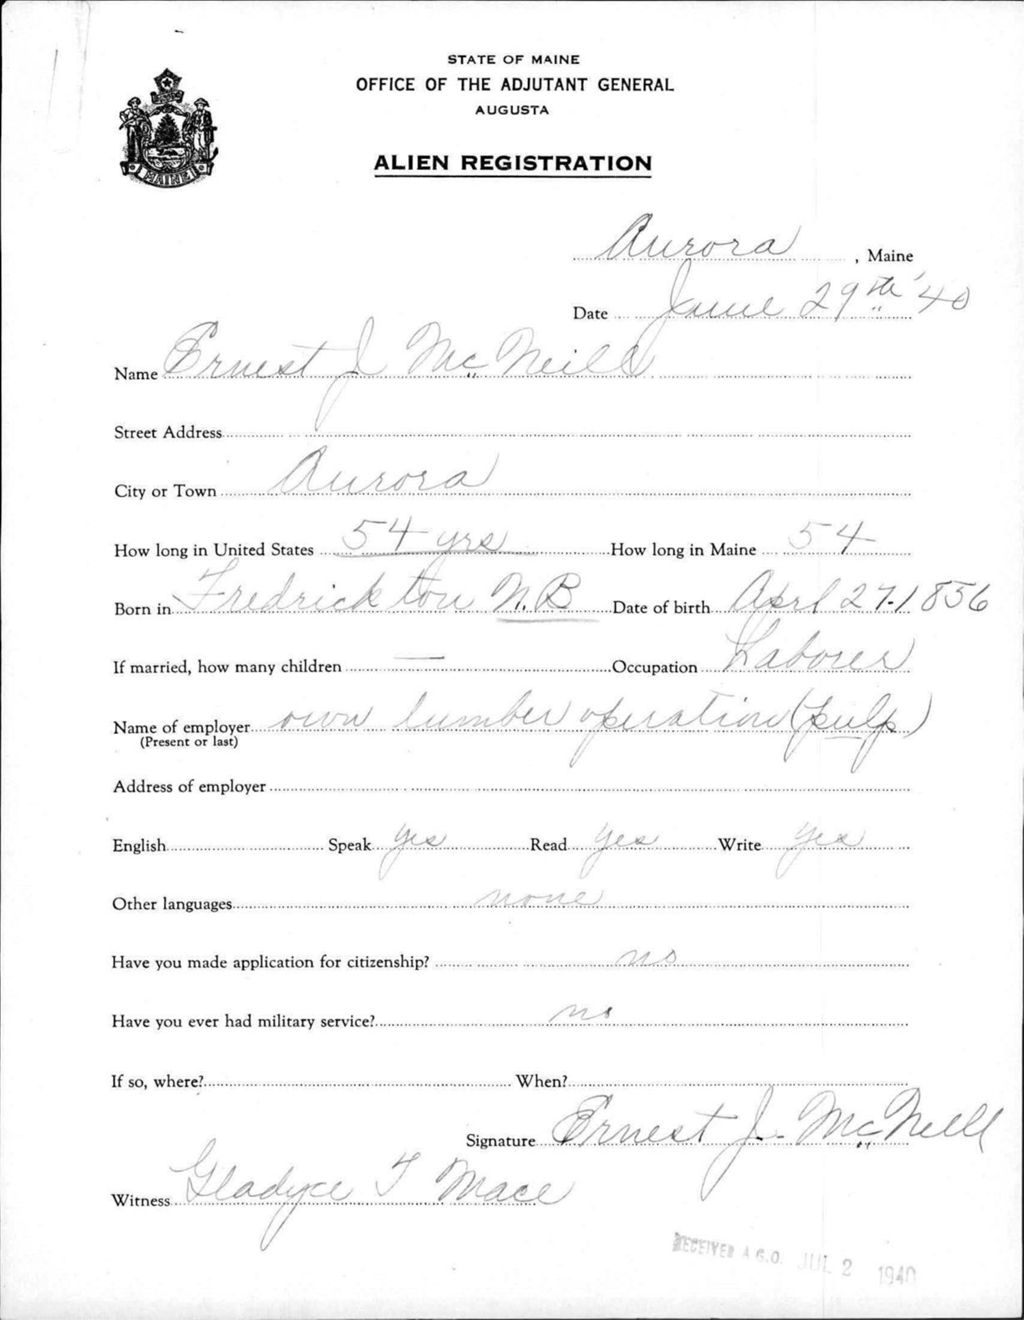 STATE OF MAINE
OFFICE OF THE ADJUTANT GENERAL
AUGUSTA
ALIEN REGISTRATION
MAINE
Aurora, Maine
Date June 29th '40
Name Ernest J McNeill
Street Address
City or Town Aurora
How long in United States 54 yrs How long in Maine 54
Born in Fredrickton N.B Date of birth Aprl 27-1856
If married, how many children — Occupation Laborer
Name of employer own lumber operation (pulp)
(Present or last)
Address of employer
English Speak yes Read yes Write yes
Other languages none
Have you made application for citizenship? no
Have you ever had military service? no
If so, where? When?
Signature Ernest J. McNeill
Witness Gladyce T Mace
RECEIVED A.G.O. JUL 2 1940